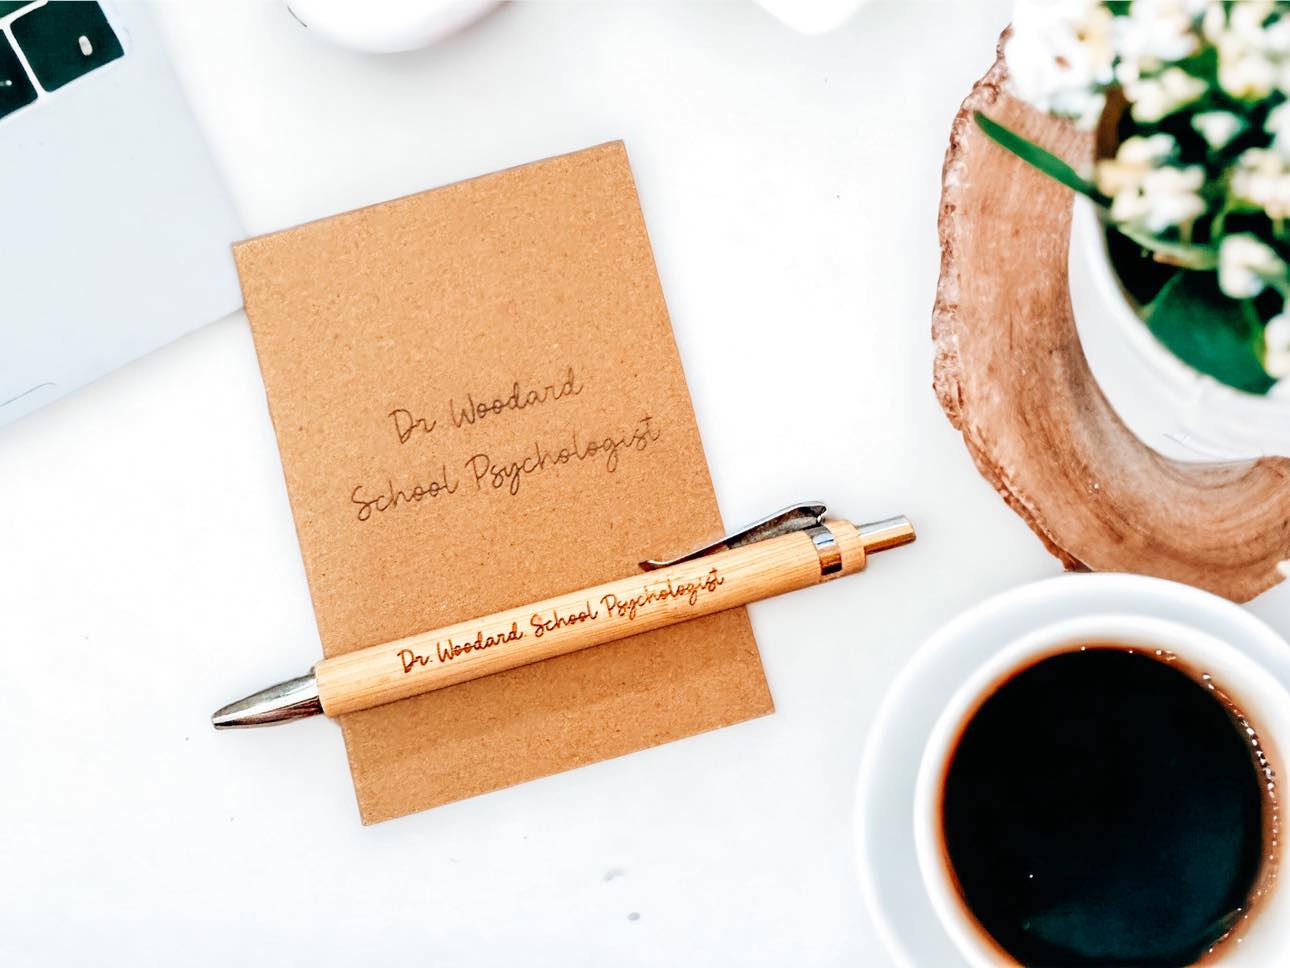 Dr Woodard
School Psychologist
Dr. Woodard, School Psychologist